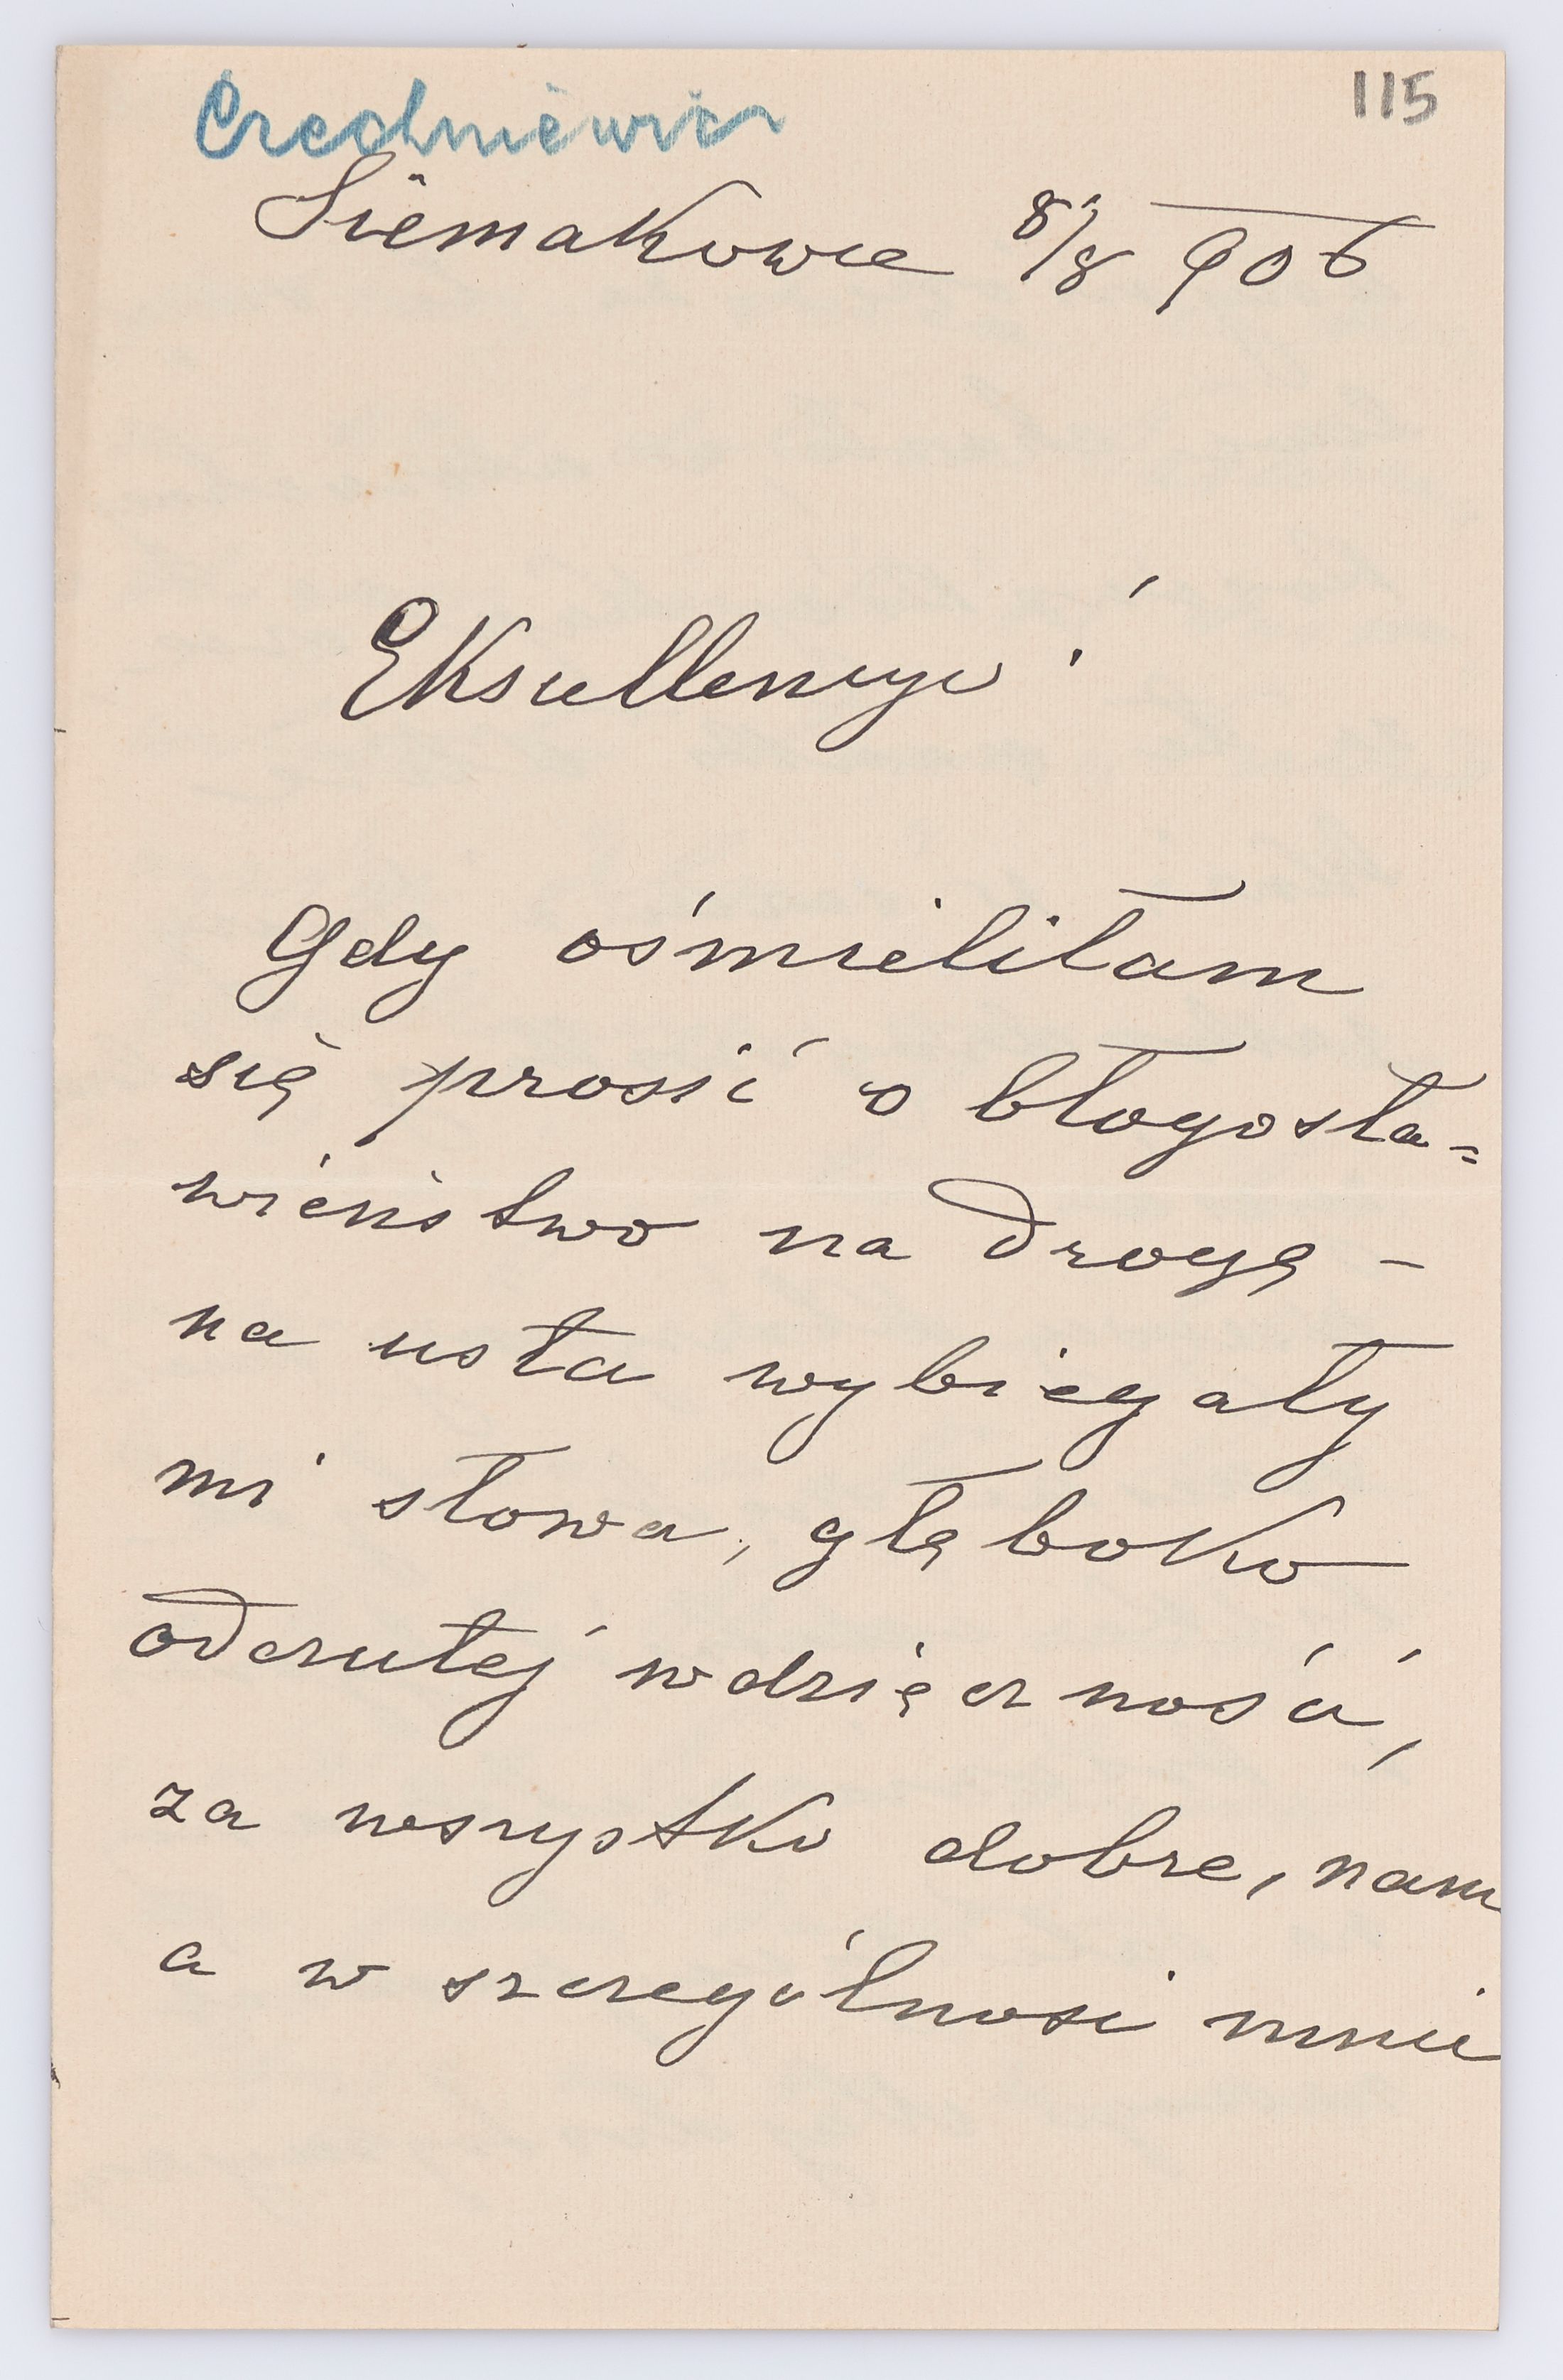 115
Czechniewicz
Siemakowce 8/8 906
Ekscellencyo!
Gdy ośmieliłam
się prosić o błogosła=
wieństwo na drogę –
na usta wybiegały
mi słowa, głęboko
odczutej wdzięczności,
za wszystko dobre, nam
a w szczególnosci mnie